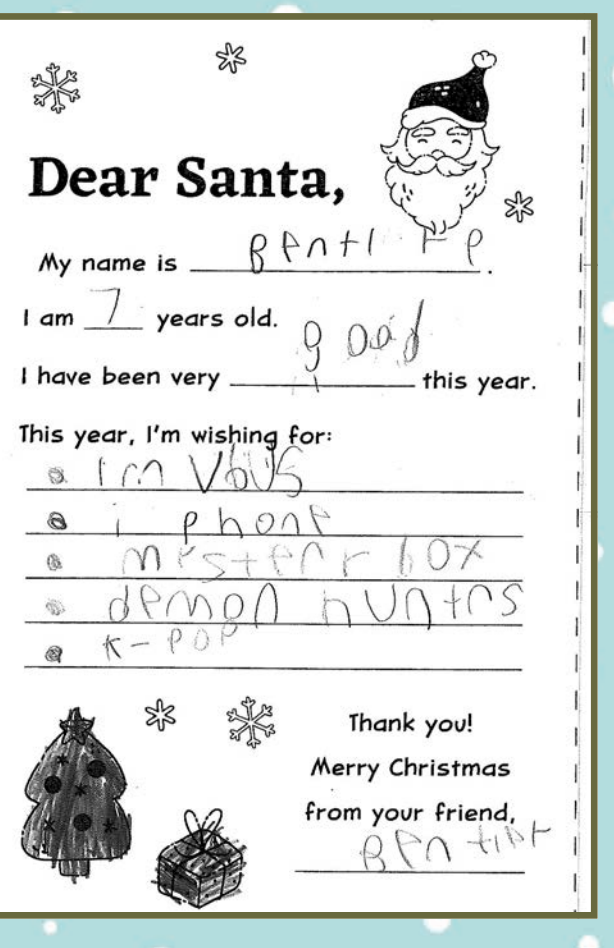 Dear Santa,
My name is .
I am 7 years old.
I have been very good this year.
This year, I'm wishing for:
im
i phone
demon huntrs
K-POP
Thank you!
Merry Christmas
from your friend,